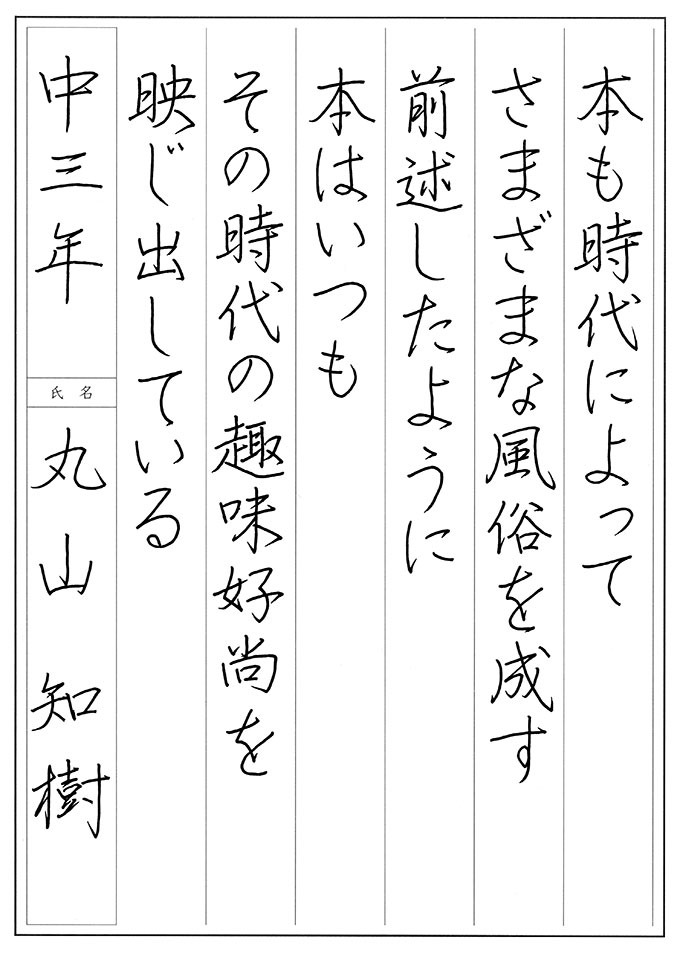 本も時代によって
さまざまな風俗を成す
前述したように
本はいつも
その時代の趣味好尚を
映じ出している
中三年
氏名
丸山 知樹